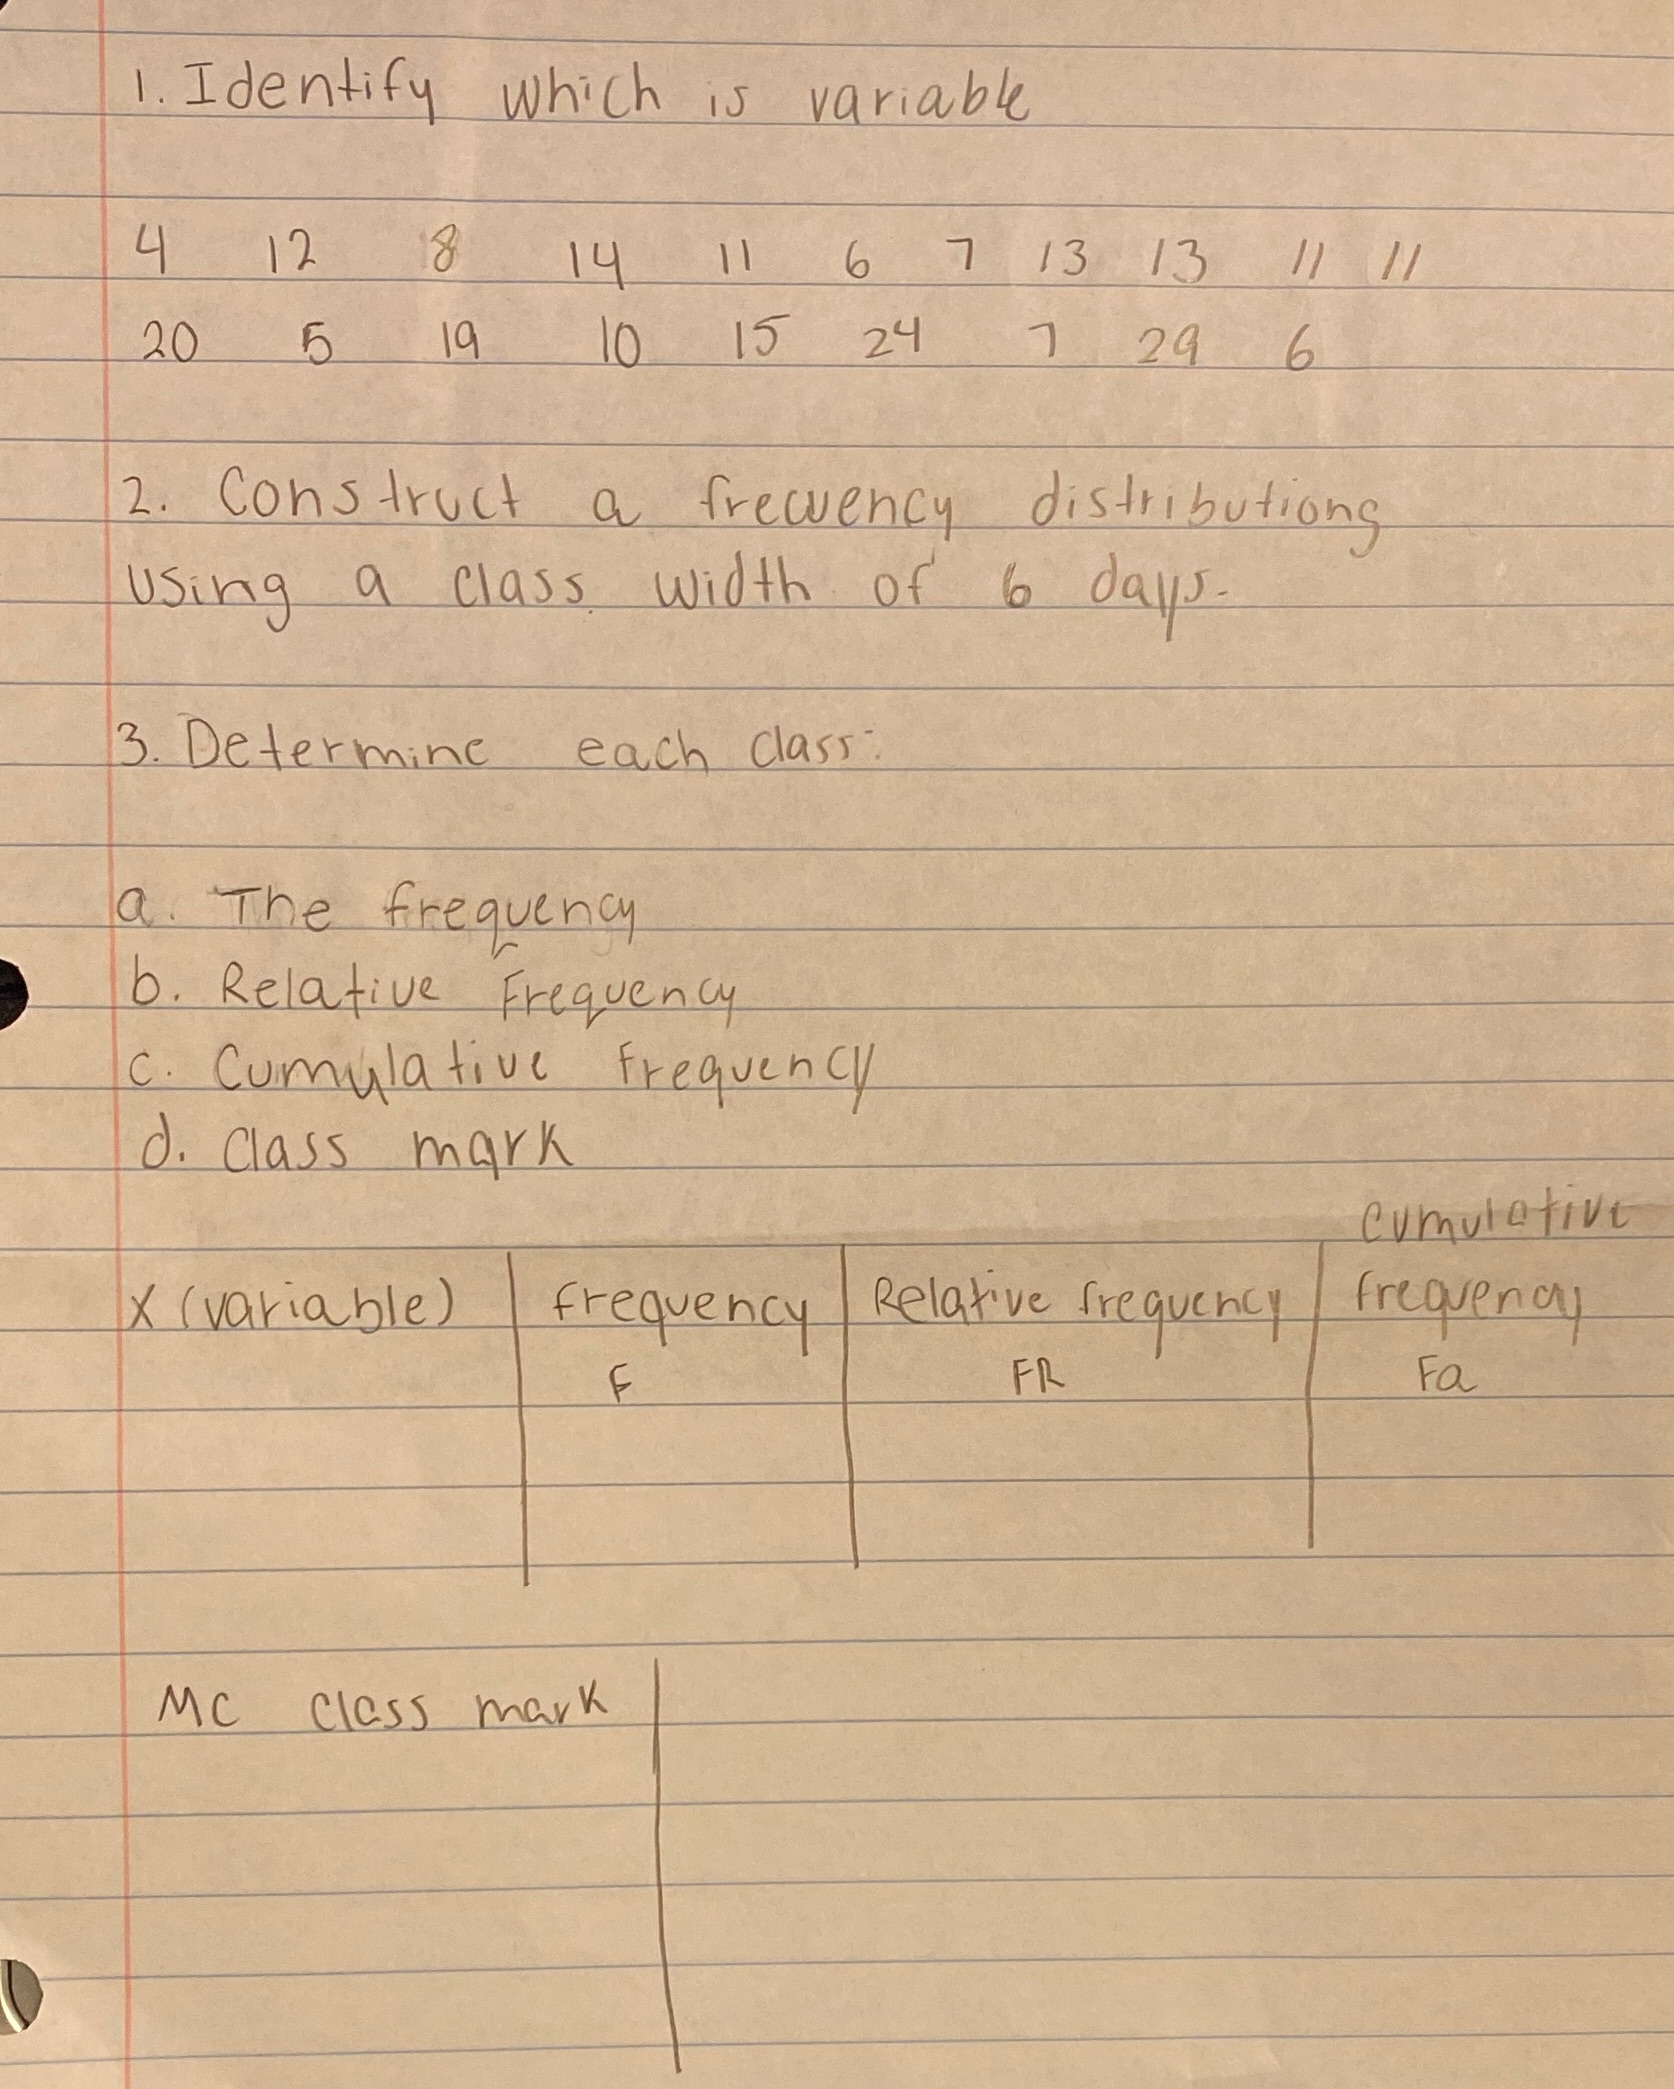 1. Identify which is variable
4 12 8 14 11 6 7 13 13 11 11
20 5 19 10 15 24 7 29 6
2. Construct a frecuency distributiong
using a class width of 6 days.
3. Determine each class:
a. The frequency
b. Relative Frequency
c. Cumulative Frequency
d. Class mark
cumulative
X (variable) frequency Relative frequency frequency
F FR Fa
MC class mark